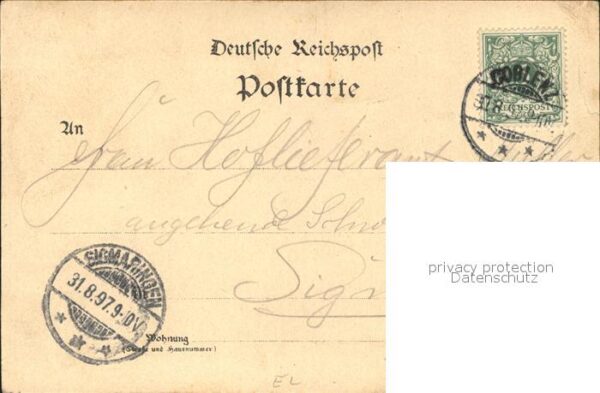 Deutsche Reichspost
Postkarte
COBLENZ
REICHSPOST
An
Frau Hoflieferant
angehende
Sig
privacy protection
Datenschutz
SIGMARINGEN
31.8.97.9-10V.
Wohnung
(Straße und Hausnummer)
EL